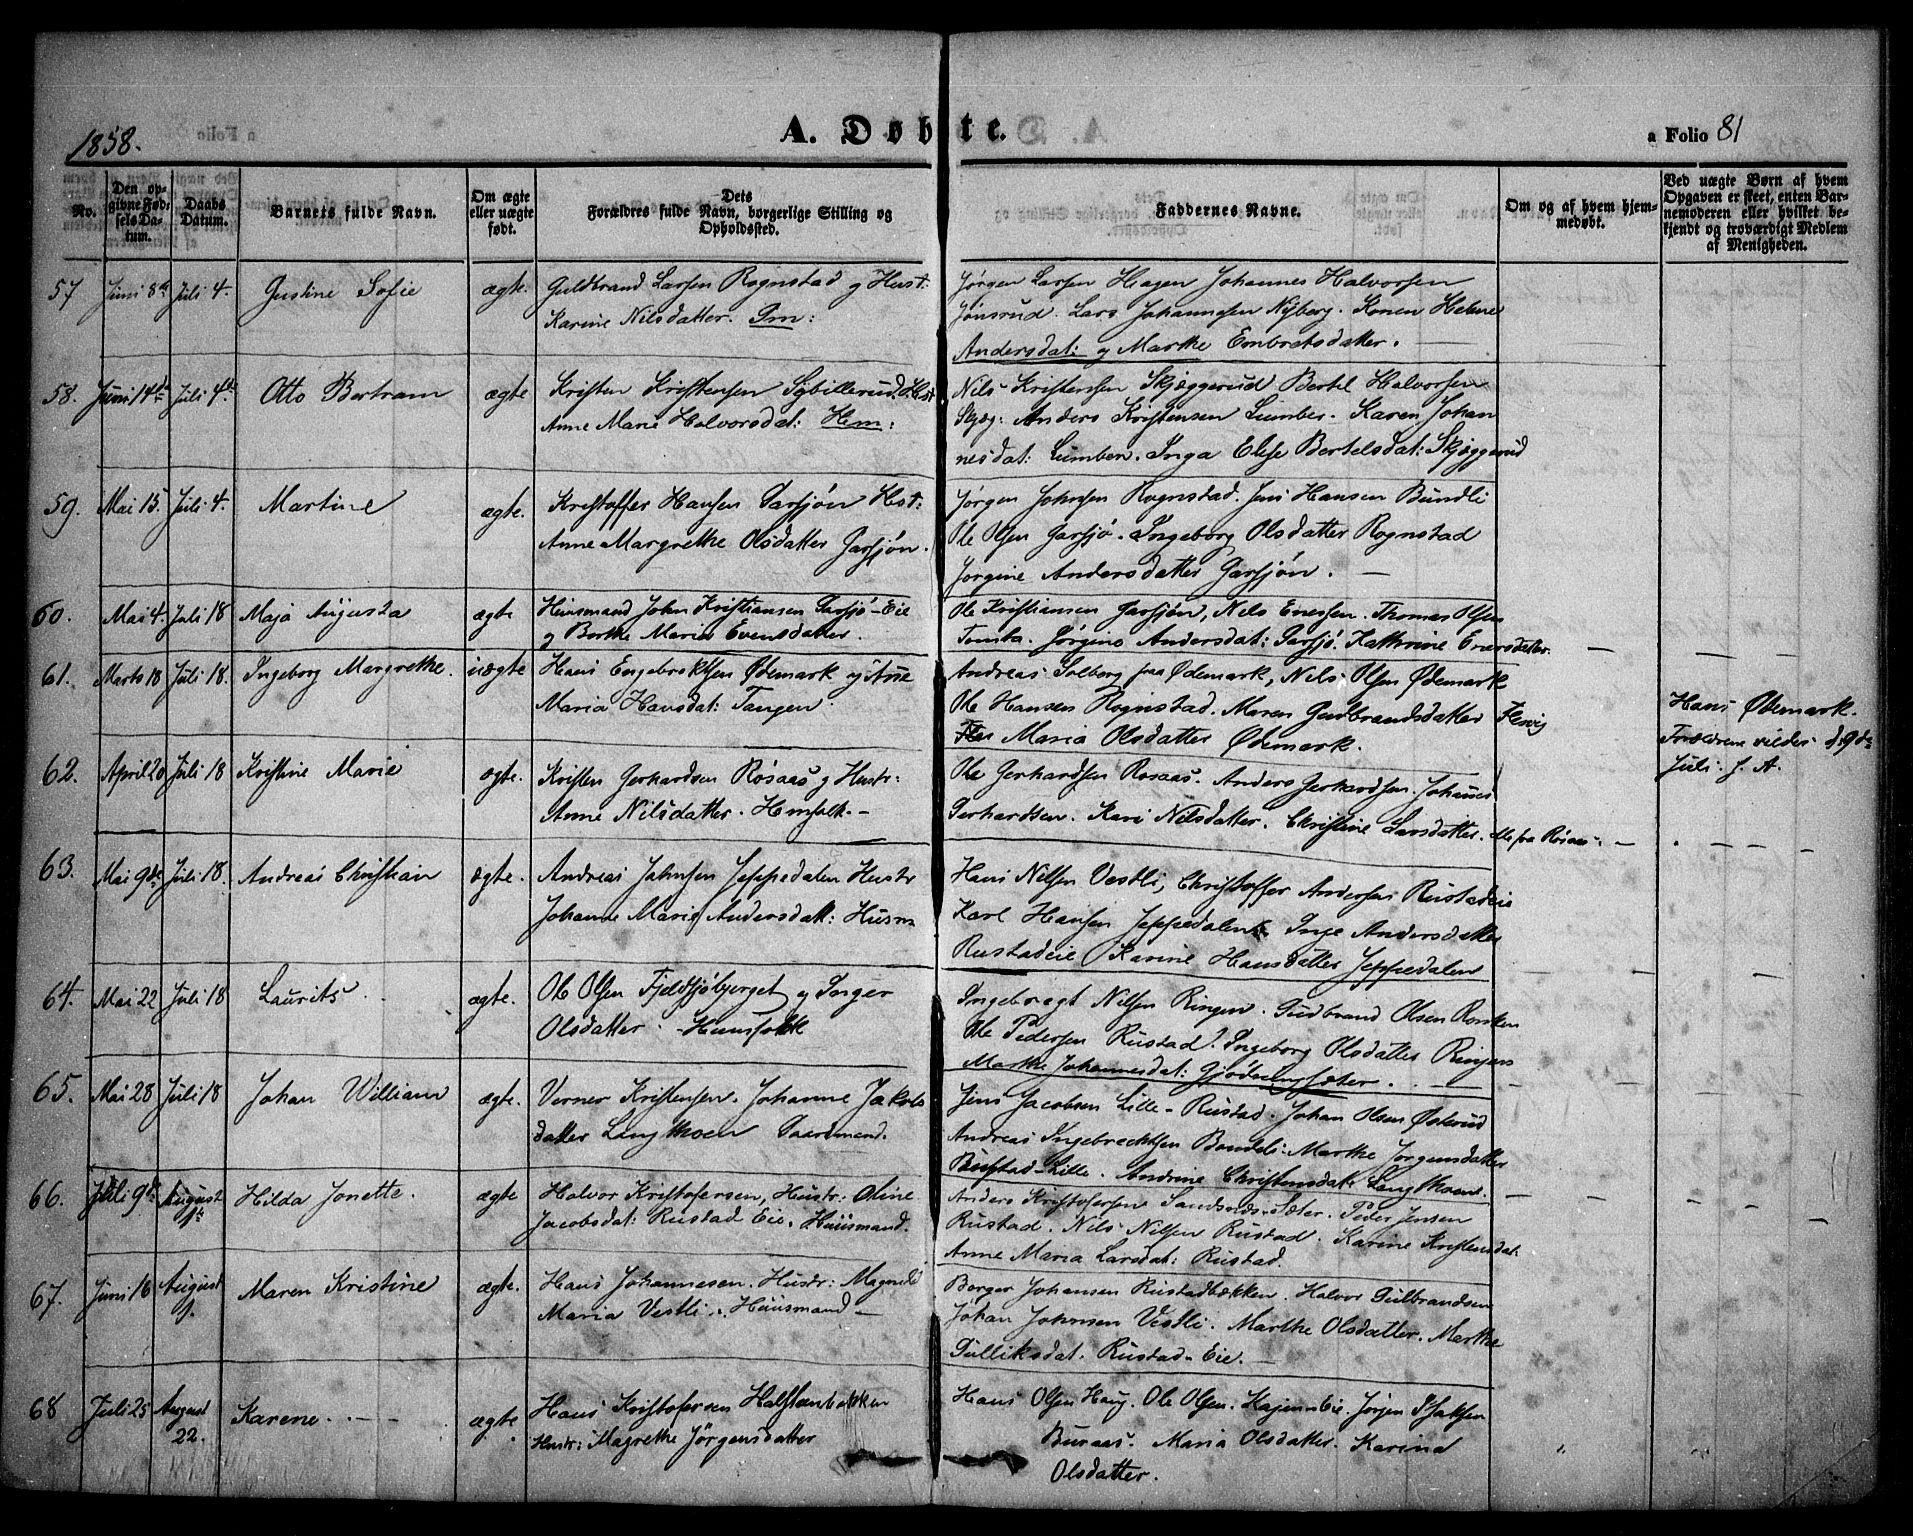 1858.
A. Døbte.
a Folio 81
No.
Den op-
givne Fød-
sels Da-
tum.
Daabs
Datum.
Barnets fulde Navn.
Om ægte
eller uægte
født.
Dets
Forældres fulde Navn, borgerlige Stilling og
Opholdssted.
Faddernes Navne.
Om og af hvem hjem-
medøbt.
Ved uægte Børn af hvem
Opgaven er skeet, enten Bar-
nemoderen eller hvilket be-
kjendt og troværdigt Medlem
af Menigheden.
57 Juni 8de Juli 4. Gustine Sofie ægte. Guldbrand Larsen Rognstad og Hust:
Karine Nilsdatter. Gm:
Jørgen Larsen Hagen Johannes Halvorsen
Jønsrud. Lars Johannesen Nyberg. Konen Helene
Andersdat: og Marthe Embretsdatter.
58. Juni 14de Juli 4de Otto Bertram ægte Kristen Kristensen Sybillerud. Hst
Anne Marie Halvorsdat: Hem:
Nils Kristensen Skjæggerud Bertel Halvorsen
Skjæg: Anders Kristensen Lumber. Karen Johan
nesdat: Lumben. Inga Elise Bertelsdat: Skjæggerud
59. Mai 15. Juli 4. Martine ægte. Kristoffer Hansen Garsjøn Hst:
Anne Margrethe Olsdatter Garsjøn.
Jørgen Johnsen Rognstad. Jens Hansen Bundli
Ole Olsen Garsjø. Ingeborg Olsdatter Rognstad
Jørgine Andersdatter Garsjøn.
60. Mai 4. Juli 18 Maja Augusta ægte Huusmand John Kristiansen Garsjø-Eie
og Berthe Maria Evensdatter.
Ole Kristiansen Garsjøn, Nils Enersen. Thomas Olsen
Tomta. Jørgine Andersdat: Garsjø. Kathrine Enersdatter.
61. Marts 18 Juli 18. Ingeborg Margrethe. uægte Hans Engebrektsen Ødemark og Anne
Maria Hansdat: Tangen.
Andreas Solberg fra Ødemark, Nils Olsen Ødemark
Ole Hansen Rognstad. Maren Gudbrandsdatter
Maria Olsdatter Ødemark.
Hans Ødemark.
Forældrene vildes d. 9de
Juli. f. A.
62. April 20 Juli 18 Kristine Marie ægte. Kristen Gerhardsen Rosaas og Hustr:
Anne Nilsdatter. Hmfolk.
Ole Gerhardsen Rosaas. Anders Gerhardsen. Johannes
Gerhardsen. Kari Nilsdatter. Christine Larsdatter. Alle fra Rosaas
63. Mai 9de Juli 18. Andreas Christian ægte. Andreas Johnsen Jeppedalen Hustr
Johanne Marie Andersdatt: Husm
Hans Nilsen Vestli, Christoffer Andersen Rustadeie
Karl Hansen Jeppedalen. Inge Andersdatter
Rustadeie Karine Hansdatter Jeppedalen
64. Mai 22 Juli 18 Laurits ægte. Ole Olsen Fjeldsjøbjerget og Inger
Olsdatter. Huusfolk
Ingebregt Nilsen Ringen. Gudbrand Olsen Rosken
Ole Pedersen Rustad. Ingeborg Olsdatter Ringen
Marthe Johannesdat: Gjødningsæter.
65. Mai 28 Juli 18 Johan William ægte. Verner Kristensen. Johanne Jakobs
datter Langthoen Gaardmand.
Jens Jacobsen Lille-Rustad. Johan Olsen Østerud
Andreas Ingebrechtsen Bondeli. Marthe Jørgensdatter
Rustad-Lille. Andrine Christensdat: Langthoen.
66. Juli 9de August 1ste Hilda Jonette. ægte Halvor Kristofersen, Hustr: Oline
Jacobsdat: Rustad Eie. Huusmand.
Anders Kristofersen Sandsnes-Sæter. Peder Jensen
Rustad. Nils Nilsen Rustad. Karine Kristensdat.
Anne Maria Larsdat: Rustad.
67. Juni 16 August 1. Maren Kristine ægte. Hans Johannesen. Hustr: Magnild
Maria Vestli: Huusmand
Borger Johansen Rustadbækken. Halvor Gulbrandsen
Johan Johnsen Vestli. Marthe Olsdatter. Marthe
Gulliksdat. Rustad-Eie.
68 Juli 25 August 22. Karene. ægte. Hans Kristofersen Halstenbækken
Hustr: Magrethe Jørgensdatter
Hans Olsen Haug. Ole Olsen. Kajen-Eie. Jørgen Isaksen
Buraas. Maria Olsdatter. Karina
Olsdatter.